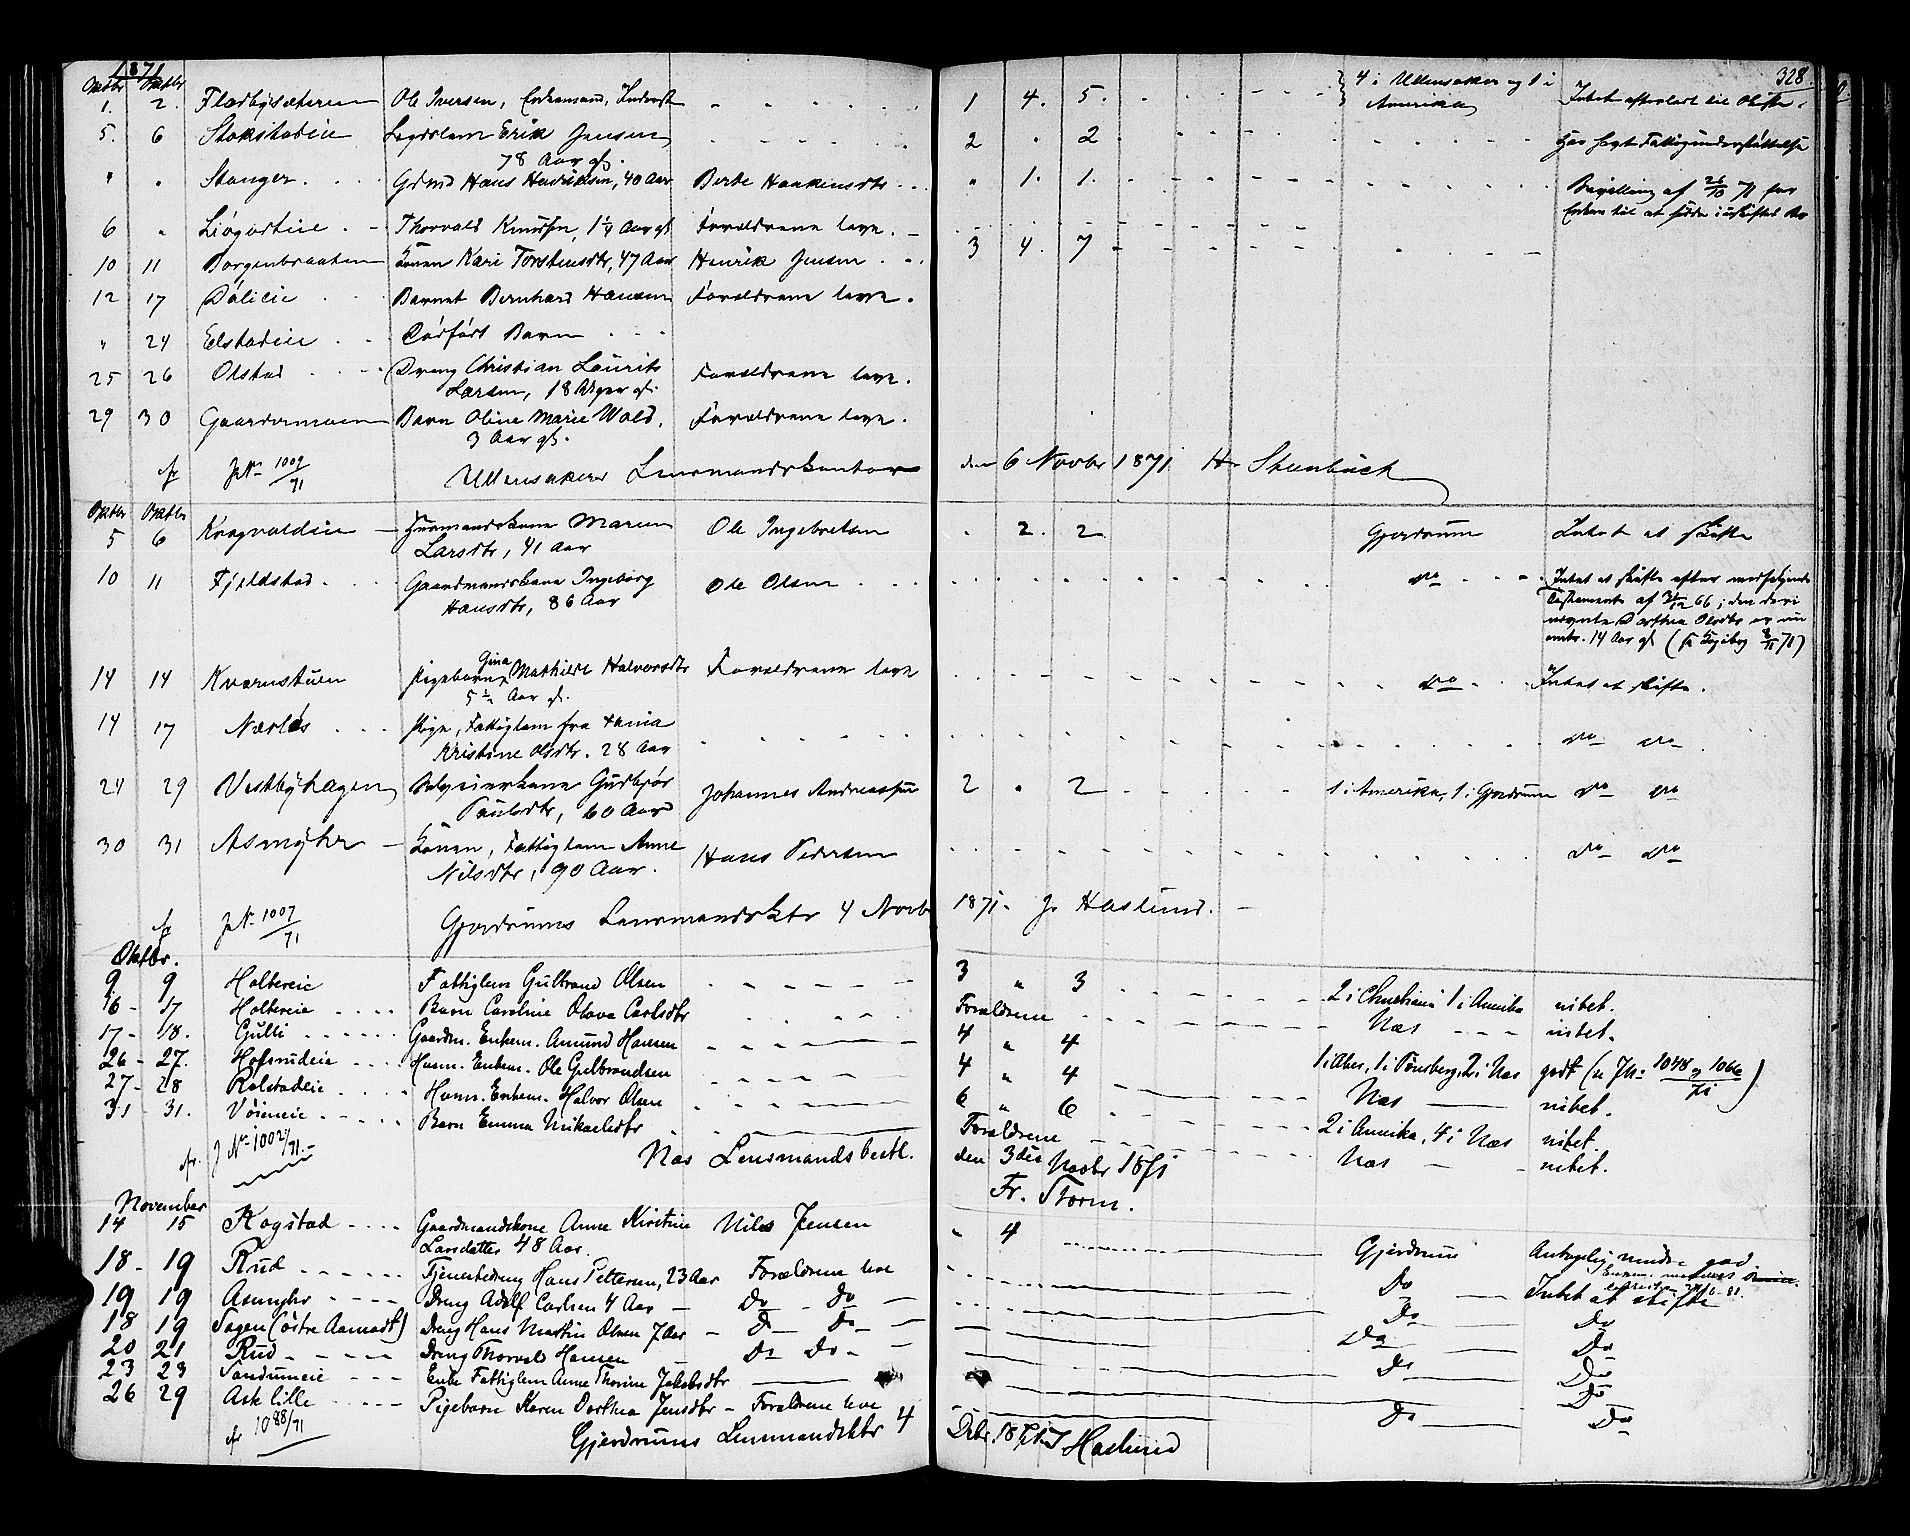 328.
1871
Oktbr Oktbr
1. 2. Flædbysæteren Ole Iversen, Enkemand, Inderst 1 4. 5. 4 i Ullensaker og 1 i Amerika Intet efterladt til Skifte
5. 6 Stokstadeie Lægdslem Erik Jensen, 78 Aar gl. 2 " 2 Har havt Fattigunderstøttelse
" " Stanger Grdmd Hans Henriksen, 40 Aar Berte Haakensdtr " 1. 1. Bevilling af 26/10 71 for Enken til at sidde i uskiftet Bo
6 " Liøgodteie Thorvald Knudsen, 1 1/4 Aar gl Forældrene leve.
10 11 Borgenbraaten Konen Kari Torstensdtr, 47 Aar Henrik Jensen 3 4. 7
12 17 Dølieie Barnet Bernhard Hansen Forældrene leve.
" 24 Elstadeie Dødfødt Barn
25 26 Olstad Dreng Christian Laurits Larsen, 18 Uger gl. Forældrene leve.
29 30 Gaardermoen Barn Oline Marie Wold, 3 Aar gl. Forældrene leve.
cfr JN 1009/71 Ullensakers Lensmandskontor den 6 Novbr 1871 Hr Steenbuch
Oktbr Oktbr
5 6 Kragvoldeie Husmandskone Maren Larsdtr, 41 Aar Ole Ingebretsen " 2. 2 Gjerdrum Intet at skifte
10 11 Fjeldstad Gaardmandskone Ingeborg Hansdtr, 86 Aar Ole Olsen do Intet at skifte efter medfølgende Testamente af 31/12 66; den deri nævnte Dorthea Olsdtr er nu omtr. 14 Aar gl
14 14 Kværnstuen Pigebarn Gina Mathilde Halvorsdtr 5 1/2 Aar gl. Forældrene leve do Intet at skifte.
14 17 Nærløs Pige, Fattiglem Kristine Olsdtr. 28 Aar do do
24 29 Vestbyhagen Gudbjør Paulsdtr, 60 Aar Johannes Andreassen 2 " 2 1 i Amerika, 1 i Gjerdrum do do
30 31 Asmyhr Konen, Fattiglem Anne Nilsdtr, 90 Aar. Hans Pedersen do do
cfr JN 1007/71 Gjerdrums Lensmandsktr 4 Novb 1871. J. Haslund.
Oktbr.
9 9 Holtereie Fattiglem Gulbrand Olsen 3 " 3 2 i Christiania 1 i Amerika intet.
16 - 17 Holtereie Barn Caroline Olava Carlsdtr Forældrene Næs intet.
17 - 18. Gulli Gaardm. Enkem. Amund Hansen 4 " 4 1 i Tønsberg, 2 i Næs godt (se JN: 1048 og 1066/71)
26 - 27. Hofsrudeie Husm. Enkem. Ole Gulbrandsen 4 " 4 Næs intet.
27 - 28 Rolstadeie Husm. Enkem. Halvor Olsen 6 " 6 2 i Amerika, 4 i Næs intet.
31 - 31. Vøieneie Barn Emma Mikaelsdtr Forældrene Næs intet.
cfr. J N 1002/71. Næs Lensmandsbestl. den 3die Novbr 1871 Fr. Storm.
November
14 15 Kogstad Gaardmandskone Anne Kirstine Larsdatter 48 Aar. Nils Jensen " 4 Gjerdrum Antagelig mindre god.
18 - 19 Rud Tjenestedreng Hans Pettersen, 23 Aar Forældrene leve Do Intet at skifte
19 19 Asmyhr Dreng Adolf Carlsen 4 Aar Do Do Do Do
18 19 Sagen (østre Aamodt) Dreng Hans Martin Olsen 7 Aar Do Do Do Do
20 21 Rud Dreng Thorvald Hansen Do Do Do Do
23 23 Sandumeie Enke Fattiglem Anne Thorine Jakobsdtr Do
26 29 Ask lille Pigebarn Karen Dorthea Jensdtr Forældrene leve Do Do
cfr 1088/71 Gjerdrums Lensmandsktr 4 Dcbr. 1871 J Haslund